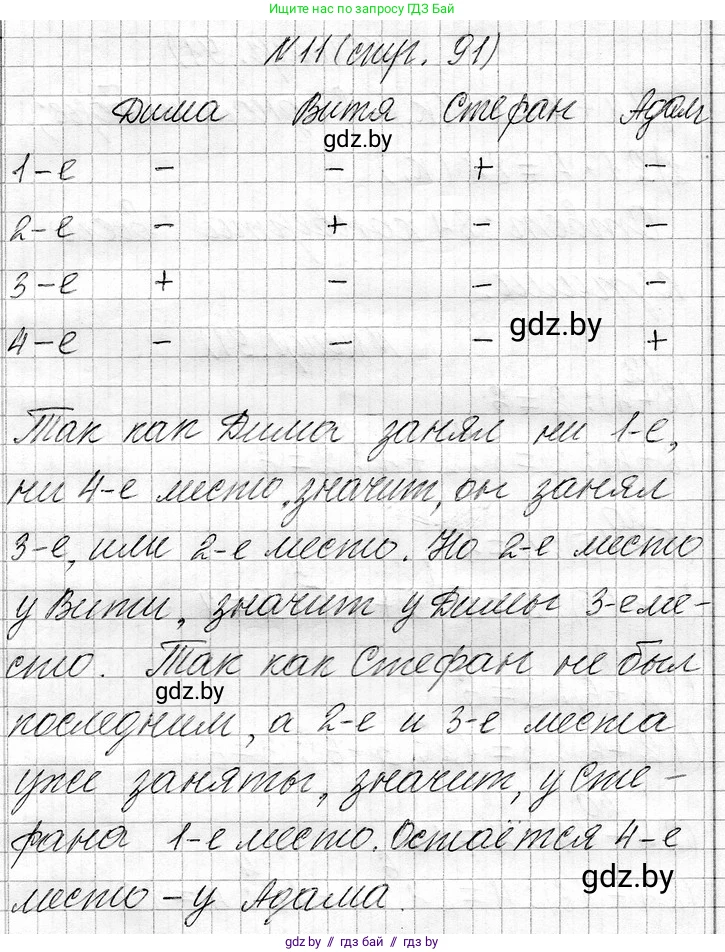 Ищите нас по запросу ГДЗ Бай
№11 (стр. 91)
Дима Витя Стефан Адам
gdz.by
1-е - - + -
2-е - + - -
3-е + - - -
gdz.by
4-е - - - +
Так как Дима занял ни 1-е,
ни 4-е место, значит, он занял
3-е, или 2-е место. Но 2-е место
у Вити, значит у Димы 3-е ме-
сто. Так как Стефан не был
gdz.by
последним, а 2-е и 3-е места
уже заняты, значит, у Сте-
фана 1-е место. Остаётся 4-е
gdz.by
место - у Адама.
gdz.by // гдз бай // гдз by